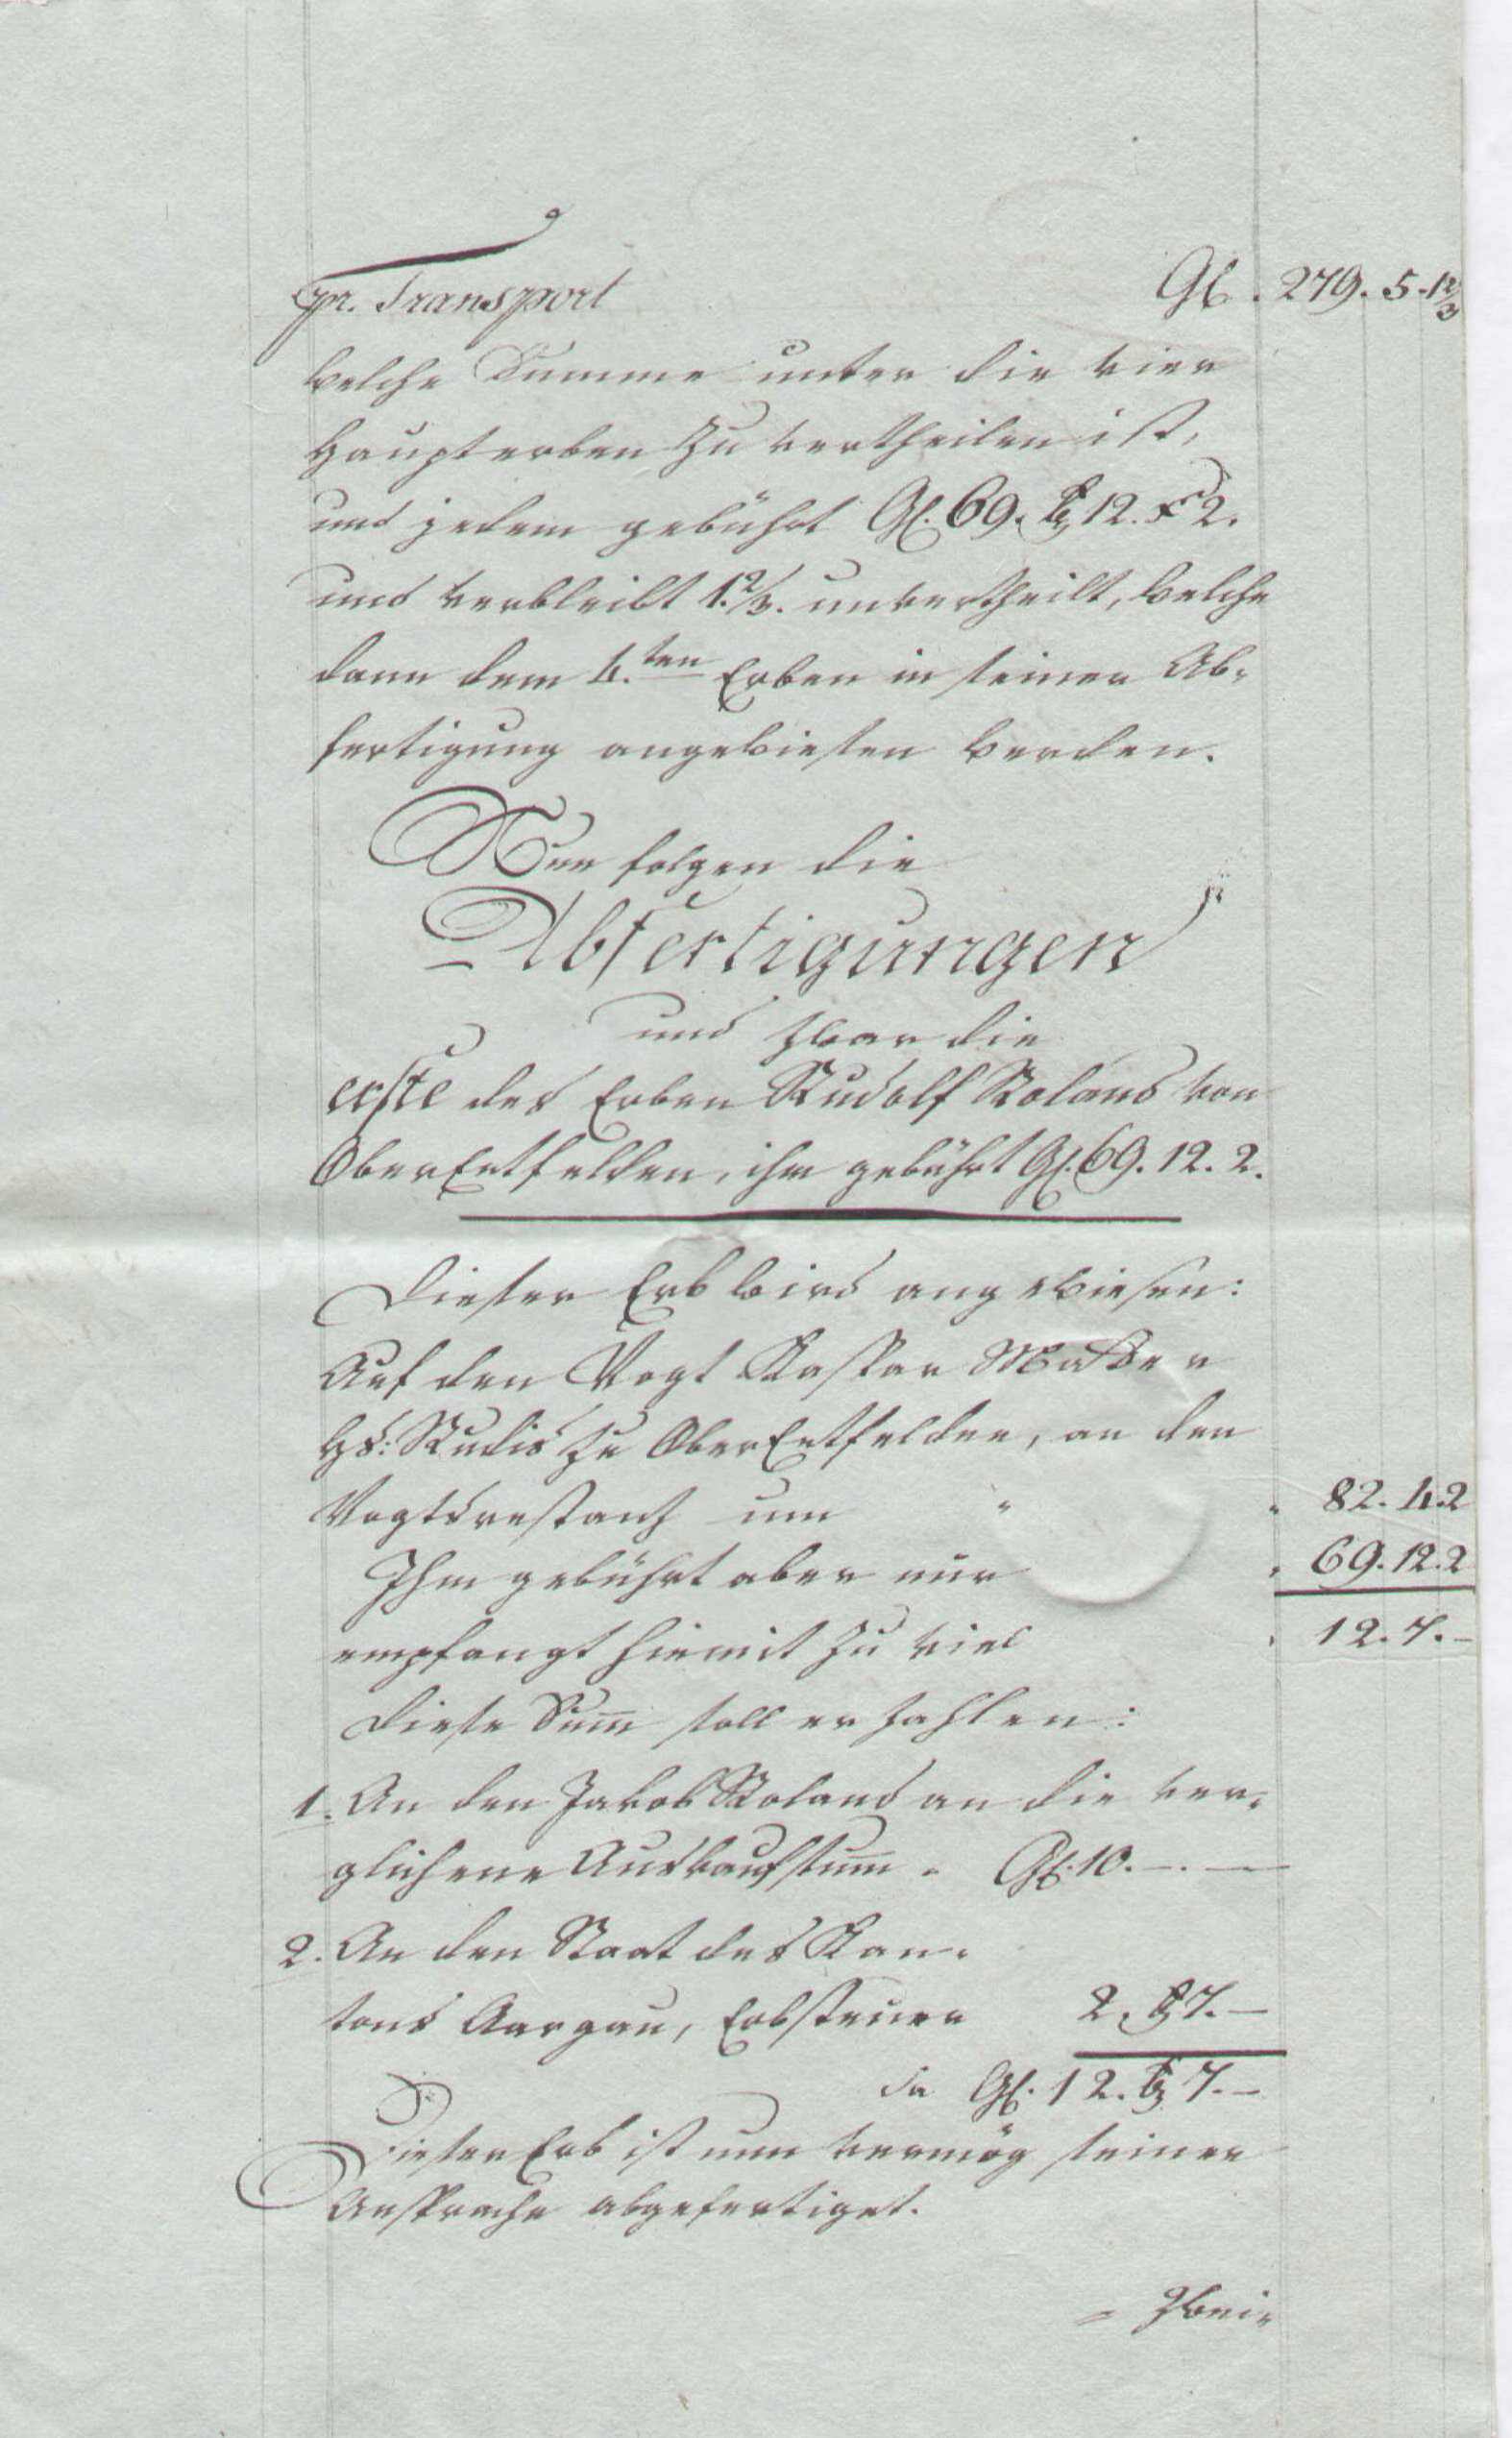 pr. Transport Gl. 279. 5. 1 2/3
welche Summe unter die vier
Haupterben zu vertheilen ist,
und jedem gebührt Gl. 69. bz 12. xr 2.
und verbleibt 1. 2/3. unvertheilt, welche
dann dem 4.ten Erben in seiner Ab-
fertigung angewiesen werden.
Nun folgen die
Abfertigungen
und zwar die
erste des Erben Rudolf Roland von
OberEntfelden, ihm gebührt Gl. 69. 12. 2.
Dieser Erb wird angewiesen:
Auf den Vogt Kaspar
Hs: Rudis zu OberEntfelden, an den
Vogtsrestanz um " " 82. 4. 2
Ihm gebührt aber nur " 69. 12. 2
empfangt hiemit zu viel " 12. 7. –
Diese Sum̅ soll er zahlen:
1. An den Jakob Roland an die ver-
glichene Auskaufsum̅ " Gl. 10. –. –
2. An den Staat des Kan-
tons Aargau, Erbsteuer 2. bz 7. –
Gl. 12. bz 7. –
Dieser Erb ist nun vermög seiner
Ansprache abgefertiget.
= Zwei-